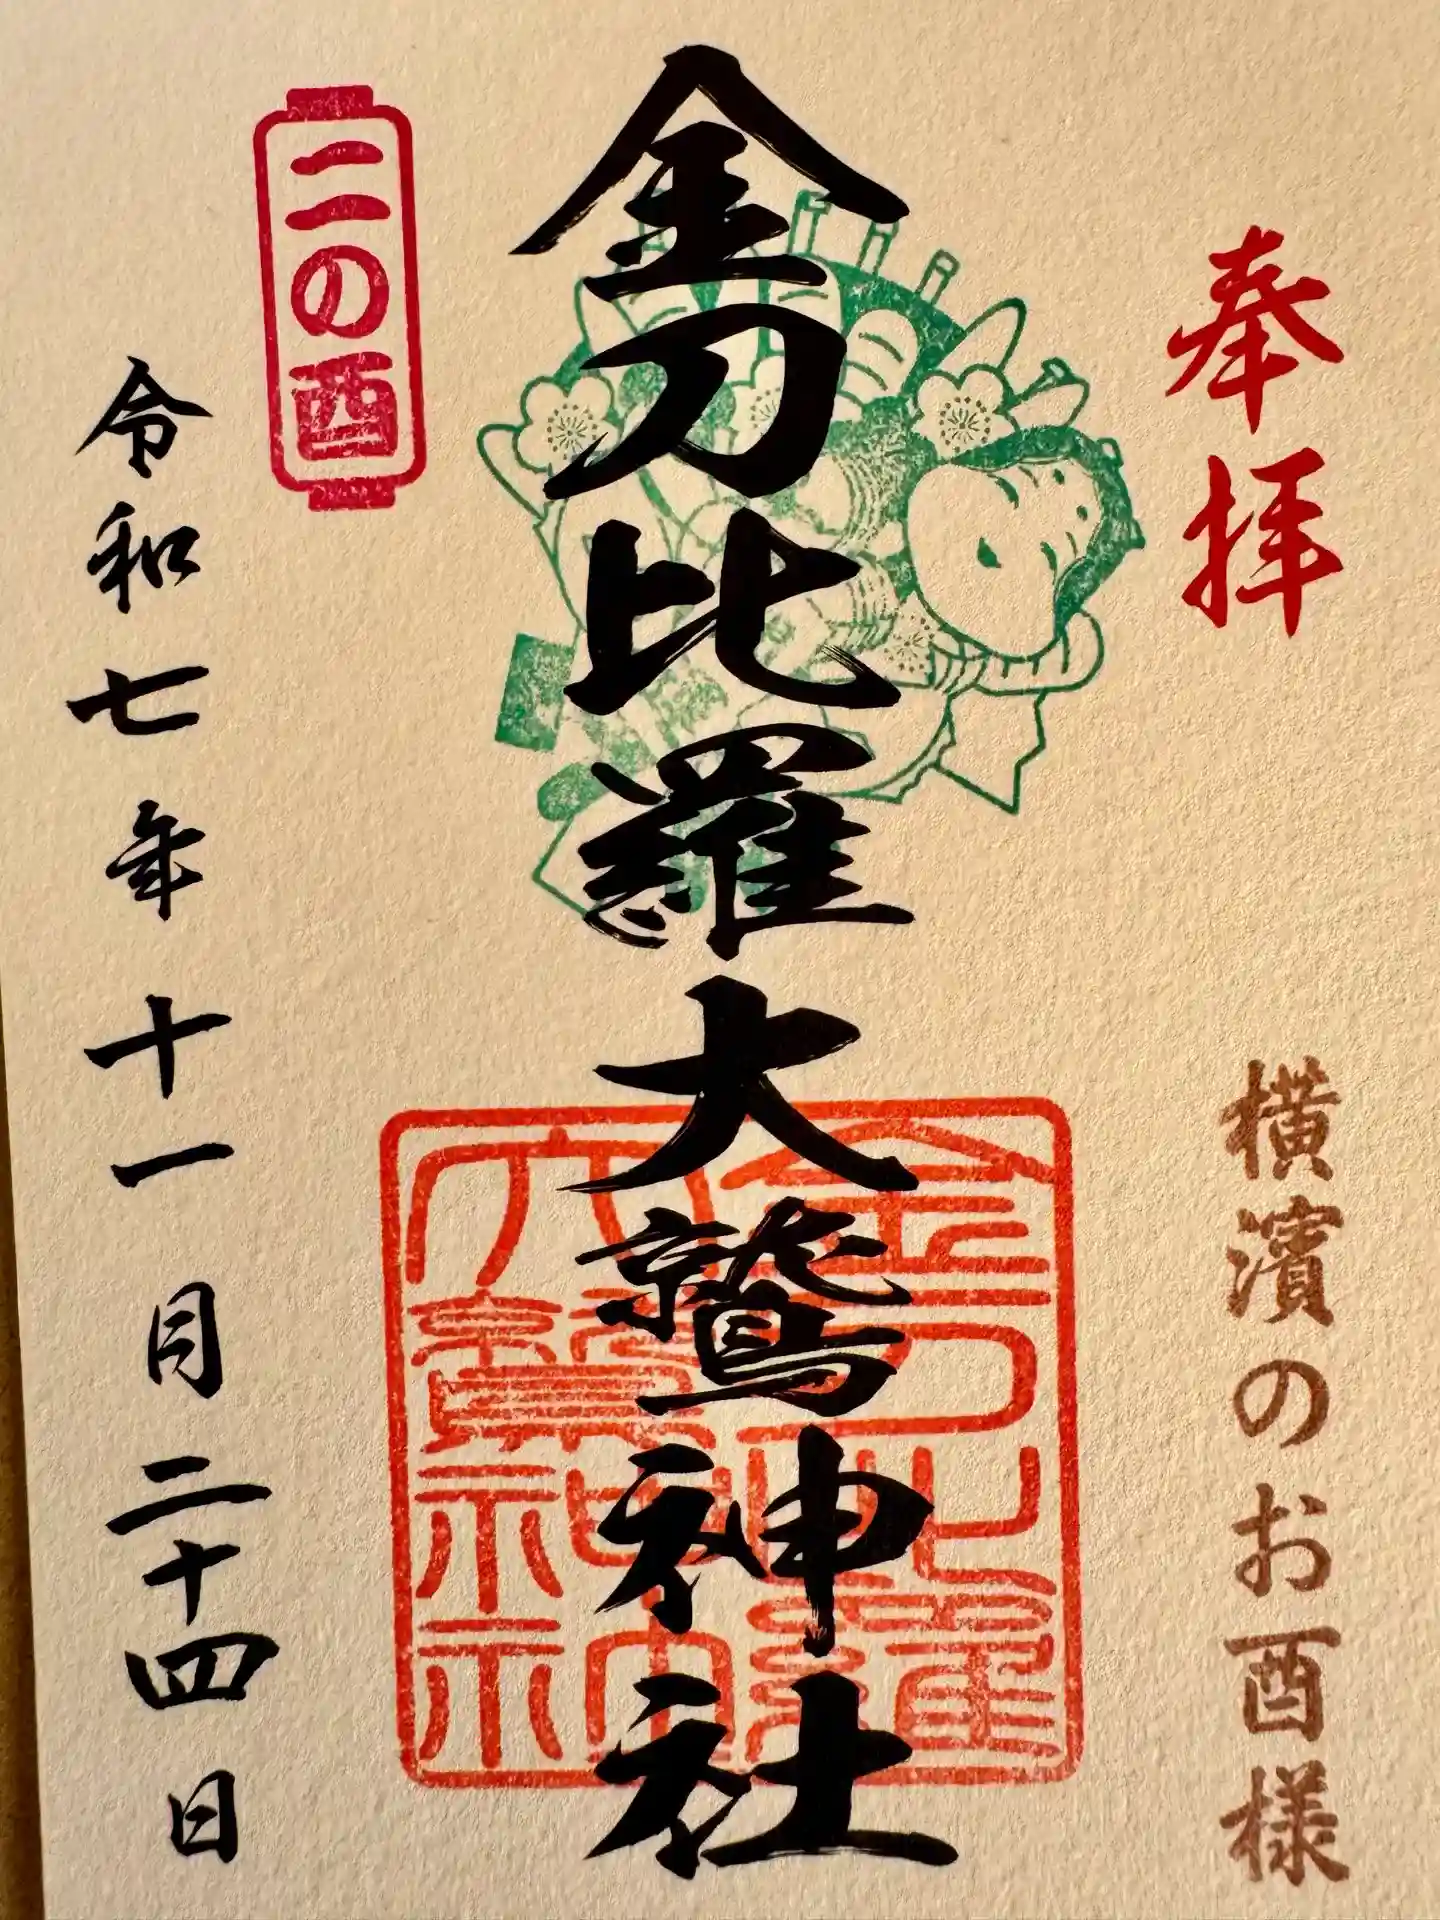 奉拝
横濱のお酉様
金刀比羅大鷲神社
金刀比羅大鷲神社
二の酉
令和七年十一月二十四日